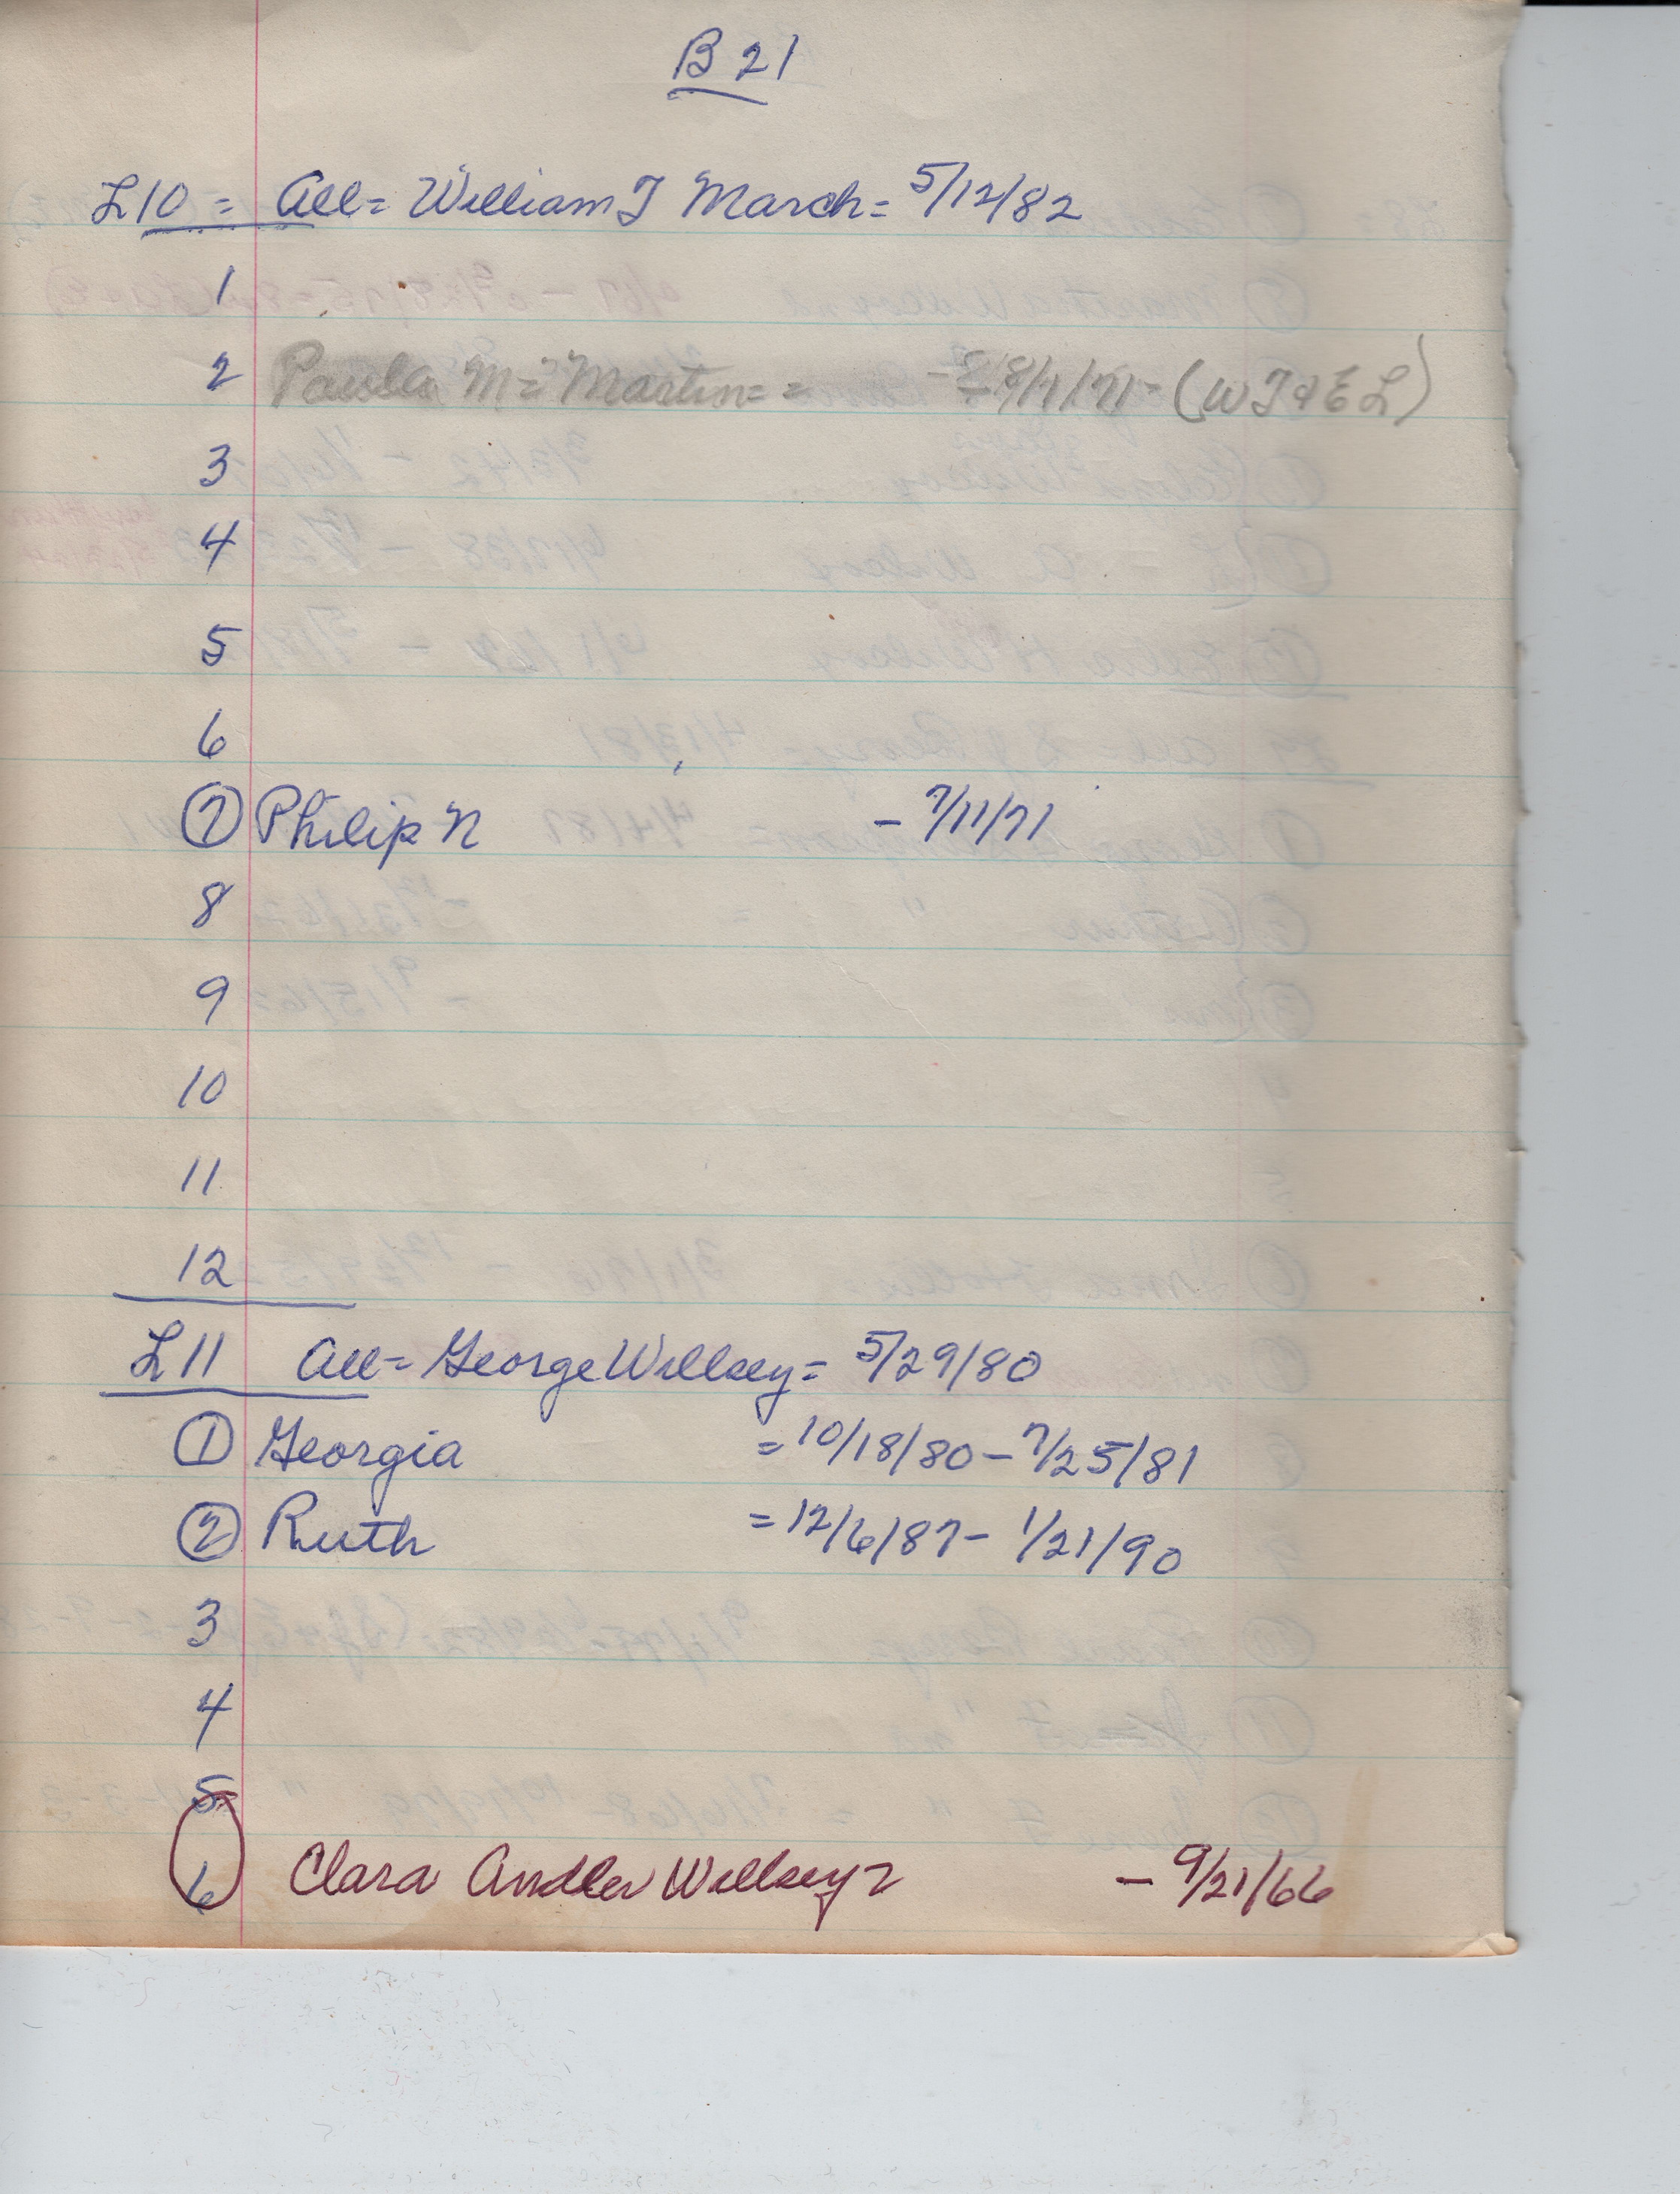 B 21
L10 = All = William T March = 5/12/82
1
2 Paula M = Martin = = - 8/7/71 - (WT & E L)
3
4
5
6
7 Philip N - 7/11/71
8
9
10
11
12
L11 All = George Willsey = 5/29/80
1 Georgia = 10/18/80 - 7/25/81
2 Ruth = 12/6/87 - 1/21/90
3
4
5
6 Clara Andler Willsey = - 9/21/66